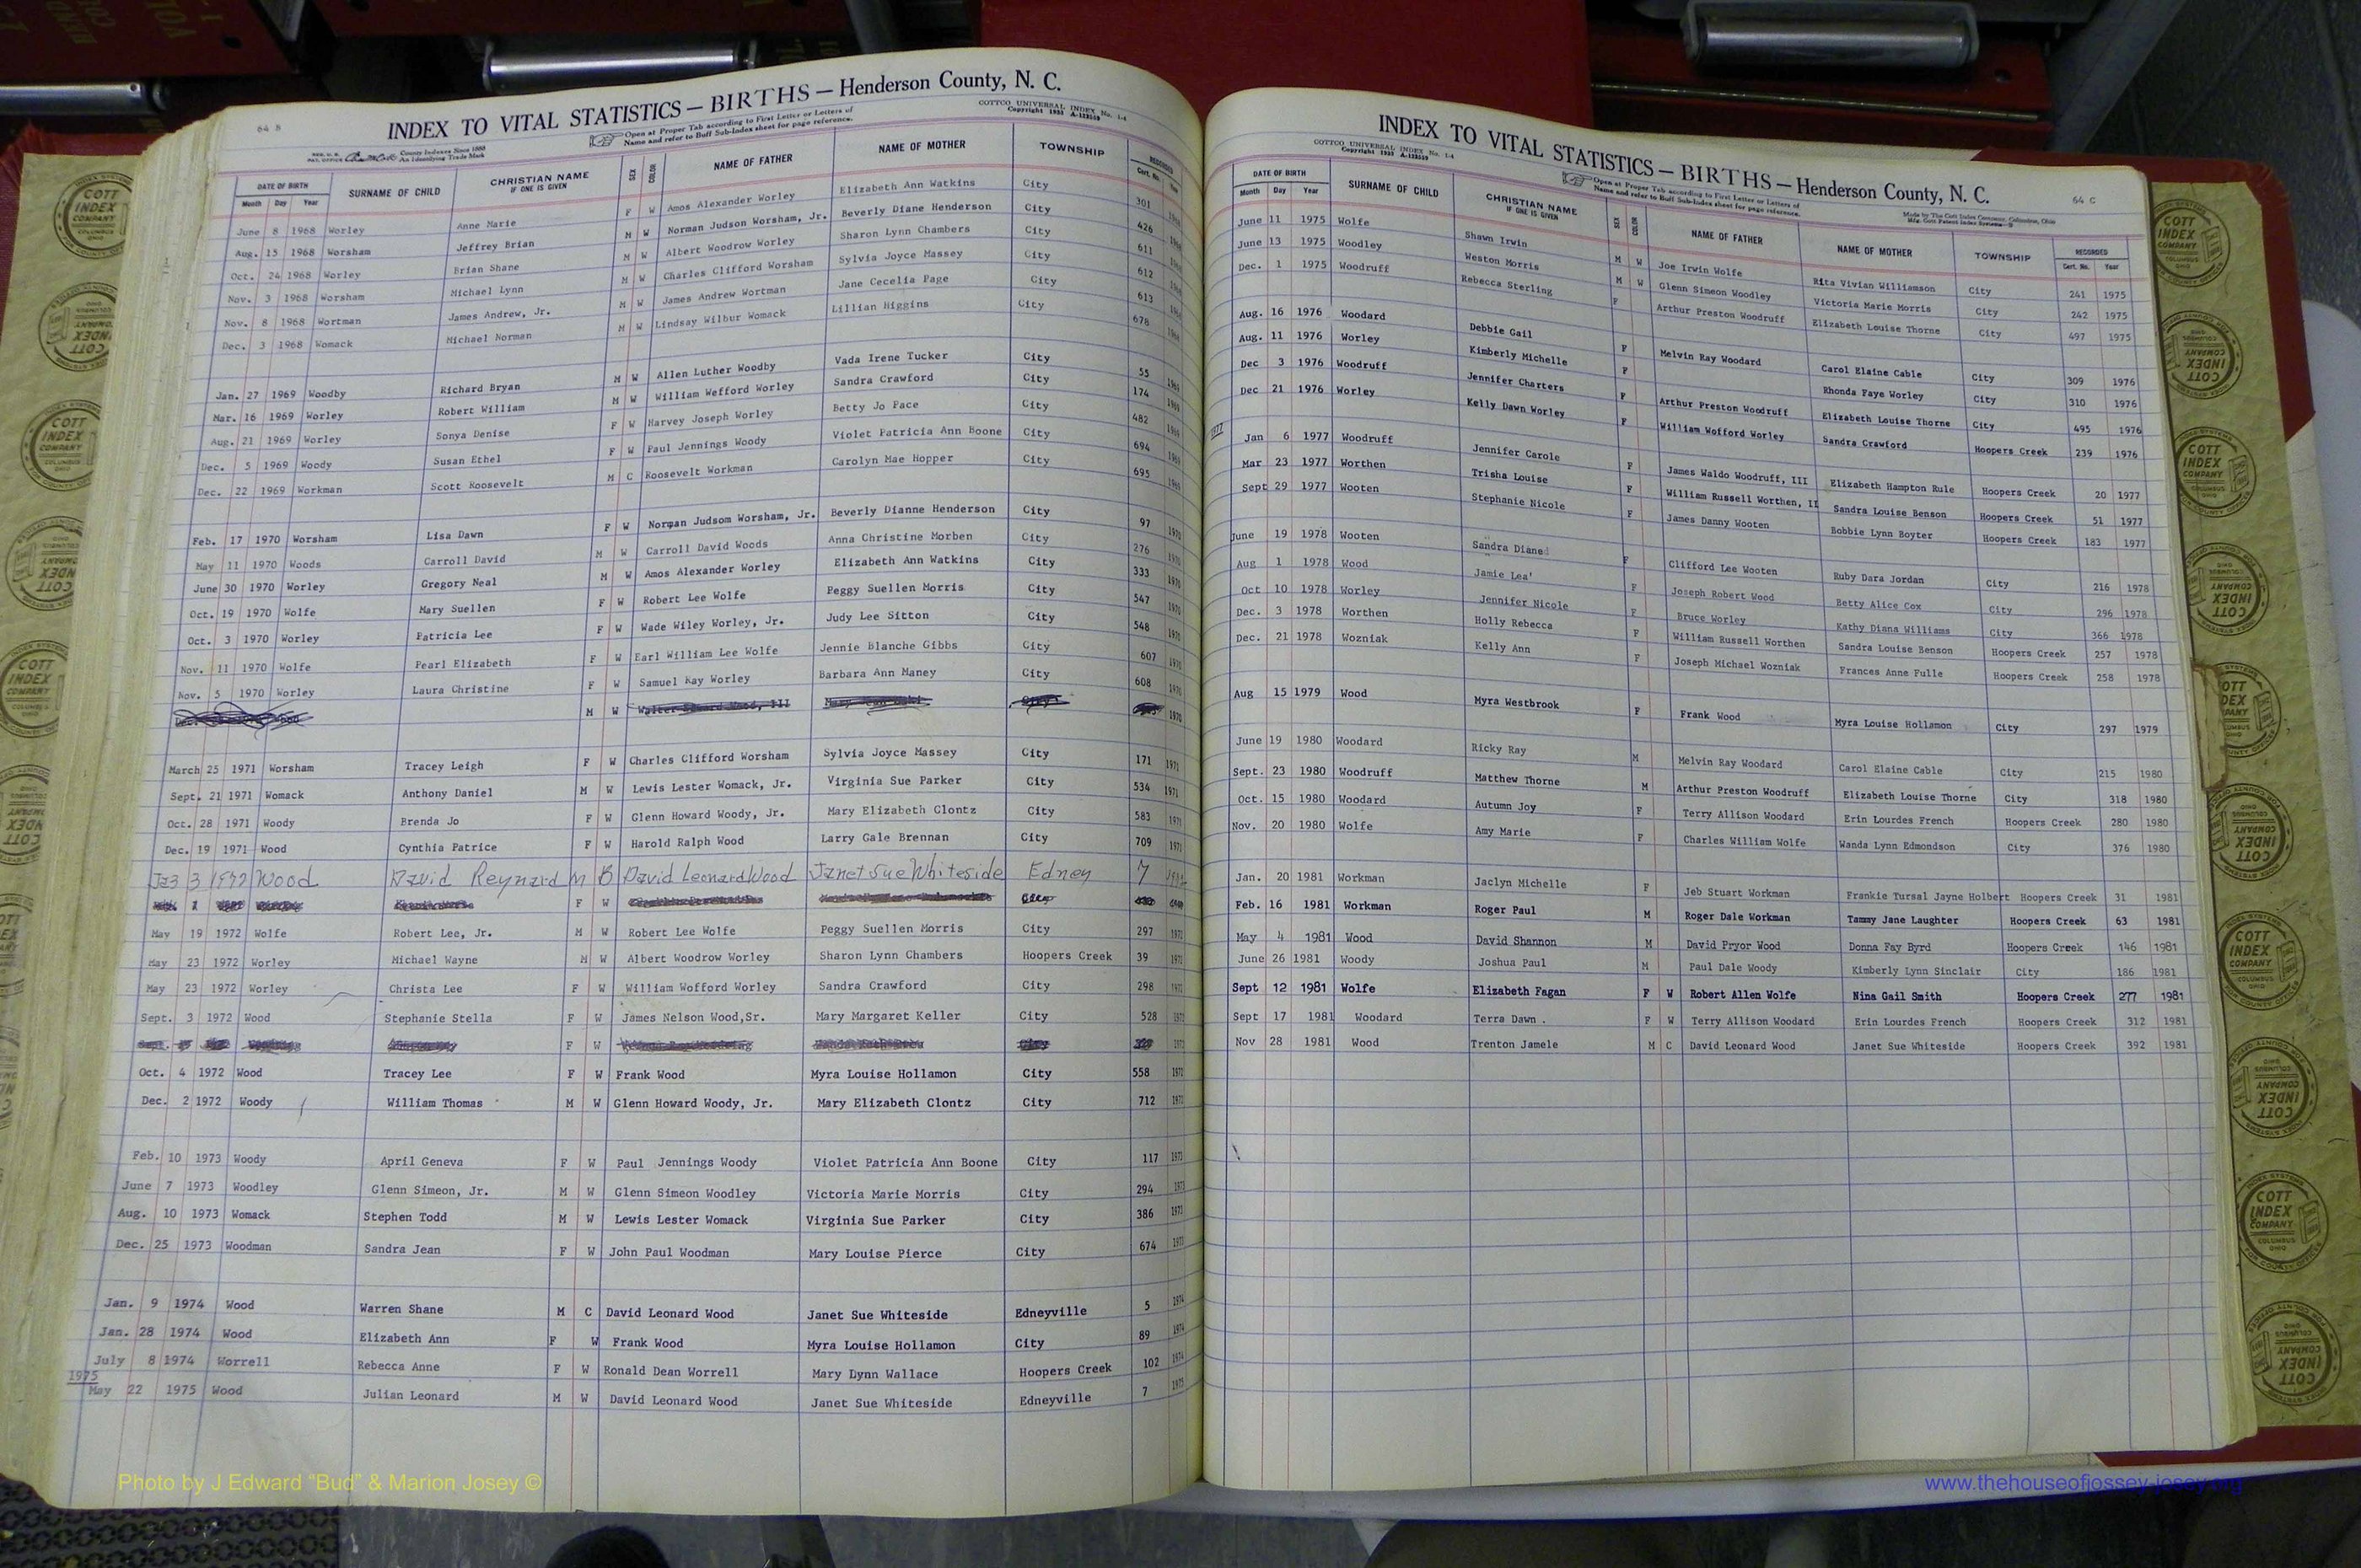 64 B
INDEX TO VITAL STATISTICS — BIRTHS — Henderson County, N. C.
COTTCO UNIVERSAL INDEX No. 1-4
Copyright 1935 A-123559
County Indexes Since 1888
An Identifying Trade Mark
Open at Proper Tab according to First Letter or Letters of
Name and refer to Buff Sub-Index sheet for page reference.
DATE OF BIRTH SURNAME OF CHILD CHRISTIAN NAME IF ONE IS GIVEN SEX COLOR NAME OF FATHER NAME OF MOTHER TOWNSHIP RECORDED
Month Day Year Cert. No. Year
June 8 1968 Worley Anne Marie F W Amos Alexander Worley Elizabeth Ann Watkins City 301
Aug. 15 1968 Worsham Jeffrey Brian M W Norman Judson Worsham, Jr. Beverly Diane Henderson City 426
Oct. 24 1968 Worley Brian Shane M W Albert Woodrow Worley Sharon Lynn Chambers City 611
Nov. 3 1968 Worsham Michael Lynn M W Charles Clifford Worsham Sylvia Joyce Massey City 612
Nov. 8 1968 Wortman James Andrew, Jr. M W James Andrew Wortman Jane Cecelia Page City 613
Dec. 3 1968 Womack Michael Norman M W Lindsay Wilbur Womack Lillian Higgins City 678
Jan. 27 1969 Woodby Richard Bryan M W Allen Luther Woodby Vada Irene Tucker City 55 1969
Mar. 16 1969 Worley Robert William M W William Wefford Worley Sandra Crawford City 174 1969
Aug. 21 1969 Worley Sonya Denise F W Harvey Joseph Worley Betty Jo Pace City 482 1969
Dec. 5 1969 Woody Susan Ethel F W Paul Jennings Woody Violet Patricia Ann Boone City 694 1969
Dec. 22 1969 Workman Scott Roosevelt M C Roosevelt Workman Carolyn Mae Hopper City 695 1969
Feb. 17 1970 Worsham Lisa Dawn F W Norman Judsom Worsham, Jr. Beverly Dianne Henderson City 97 1970
May 11 1970 Woods Carroll David M W Carroll David Woods Anna Christine Morben City 276 1970
June 30 1970 Worley Gregory Neal M W Amos Alexander Worley Elizabeth Ann Watkins City 333 1970
Oct. 19 1970 Wolfe Mary Suellen F W Robert Lee Wolfe Peggy Suellen Morris City 547 1970
Oct. 3 1970 Worley Patricia Lee F W Wade Wiley Worley, Jr. Judy Lee Sitton City 548 1970
Nov. 11 1970 Wolfe Pearl Elizabeth F W Earl William Lee Wolfe Jennie Blanche Gibbs City 607 1970
Nov. 5 1970 Worley Laura Christine F W Samuel Ray Worley Barbara Ann Maney City 608 1970
M W Walter Edward Wood, III 1970
March 25 1971 Worsham Tracey Leigh F W Charles Clifford Worsham Sylvia Joyce Massey City 171 1971
Sept. 21 1971 Womack Anthony Daniel M W Lewis Lester Womack, Jr. Virginia Sue Parker City 534 1971
Oct. 28 1971 Woody Brenda Jo F W Glenn Howard Woody, Jr. Mary Elizabeth Clontz City 583 1971
Dec. 19 1971 Wood Cynthia Patrice F W Harold Ralph Wood Larry Gale Brennan City 709 1971
3 1972 Wood David Reynard M B David Leonard Wood Janet Sue Whiteside Edney 7
F W
May 19 1972 Wolfe Robert Lee, Jr. M W Robert Lee Wolfe Peggy Suellen Morris City 297 1972
May 23 1972 Worley Michael Wayne M W Albert Woodrow Worley Sharon Lynn Chambers Hoopers Creek 39 1972
May 23 1972 Worley Christa Lee F W William Wofford Worley Sandra Crawford City 298 1972
Sept. 3 1972 Wood Stephanie Stella F W James Nelson Wood,Sr. Mary Margaret Keller City 528 1972
F W
Oct. 4 1972 Wood Tracey Lee F W Frank Wood Myra Louise Hollamon City 558 1972
Dec. 2 1972 Woody William Thomas M W Glenn Howard Woody, Jr. Mary Elizabeth Clontz City 712 1972
Feb. 10 1973 Woody April Geneva F W Paul Jennings Woody Violet Patricia Ann Boone City 117 1973
June 7 1973 Woodley Glenn Simeon, Jr. M W Glenn Simeon Woodley Victoria Marie Morris City 294 1973
Aug. 10 1973 Womack Stephen Todd M W Lewis Lester Womack Virginia Sue Parker City 386 1973
Dec. 25 1973 Woodman Sandra Jean F W John Paul Woodman Mary Louise Pierce City 674 1973
Jan. 9 1974 Wood Warren Shane M C David Leonard Wood Janet Sue Whiteside Edneyville 5 1974
Jan. 28 1974 Wood Elizabeth Ann F W Frank Wood Myra Louise Hollamon City 89 1974
July 8 1974 Worrell Rebecca Anne F W Ronald Dean Worrell Mary Lynn Wallace Hoopers Creek 102 1974
1975
May 22 1975 Wood Julian Leonard M W David Leonard Wood Janet Sue Whiteside Edneyville 7 1975
Photo by J Edward “Bud” & Marion Josey ©
INDEX TO VITAL STATISTICS — BIRTHS — Henderson County, N. C.
64 C
COTTCO UNIVERSAL INDEX No. 1-4
Copyright 1935 A-123559
Open at Proper Tab according to First Letter or Letters of
Name and refer to Buff Sub-Index sheet for page reference.
Made by The Cott Index Company, Columbus, Ohio
DATE OF BIRTH SURNAME OF CHILD CHRISTIAN NAME IF ONE IS GIVEN SEX COLOR NAME OF FATHER NAME OF MOTHER TOWNSHIP RECORDED
Month Day Year Cert. No. Year
June 11 1975 Wolfe Shawn Irwin M W Joe Irwin Wolfe Rita Vivian Williamson City 241 1975
June 13 1975 Woodley Weston Morris M W Glenn Simeon Woodley Victoria Marie Morris City 242 1975
Dec. 1 1975 Woodruff Rebecca Sterling F Arthur Preston Woodruff Elizabeth Louise Thorne City 497 1975
Aug. 16 1976 Woodard Debbie Gail F Melvin Ray Woodard Carol Elaine Cable City 309 1976
Aug. 11 1976 Worley Kimberly Michelle F Rhonda Faye Worley City 310 1976
Dec 3 1976 Woodruff Jennifer Charters F Arthur Preston Woodruff Elizabeth Louise Thorne City 495 1976
Dec 21 1976 Worley Kelly Dawn Worley F William Wofford Worley Sandra Crawford Hoopers Creek 239 1976
1977
Jan 6 1977 Woodruff Jennifer Carole F James Waldo Woodruff, III Elizabeth Hampton Rule Hoopers Creek 20 1977
Mar 23 1977 Worthen Trisha Louise F William Russell Worthen, II Sandra Louise Benson Hoopers Creek 51 1977
Sept 29 1977 Wooten Stephanie Nicole F James Danny Wooten Bobbie Lynn Boyter Hoopers Creek 183 1977
June 19 1978 Wooten Sandra Diane F Clifford Lee Wooten Ruby Dara Jordan City 216 1978
Aug 1 1978 Wood Jamie Lea' F Joseph Robert Wood Betty Alice Cox City 296 1978
Oct 10 1978 Worley Jennifer Nicole F Bruce Worley Kathy Diana Williams City 366 1978
Dec. 3 1978 Worthen Holly Rebecca F William Russell Worthen Sandra Louise Benson Hoopers Creek 257 1978
Dec. 21 1978 Wozniak Kelly Ann F Joseph Michael Wozniak Frances Anne Fulle Hoopers Creek 258 1978
Aug 15 1979 Wood Myra Westbrook F Frank Wood Myra Louise Hollamon City 297 1979
June 19 1980 Woodard Ricky Ray M Melvin Ray Woodard Carol Elaine Cable City 215 1980
Sept. 23 1980 Woodruff Matthew Thorne M Arthur Preston Woodruff Elizabeth Louise Thorne City 318 1980
Oct. 15 1980 Woodard Autumn Joy F Terry Allison Woodard Erin Lourdes French Hoopers Creek 280 1980
Nov. 20 1980 Wolfe Amy Marie F Charles William Wolfe Wanda Lynn Edmondson City 376 1980
Jan. 20 1981 Workman Jaclyn Michelle F Jeb Stuart Workman Frankie Tursal Jayne Holbert Hoopers Creek 31 1981
Feb. 16 1981 Workman Roger Paul M Roger Dale Workman Tammy Jane Laughter Hoopers Creek 63 1981
May 4 1981 Wood David Shannon M David Pryor Wood Donna Fay Byrd Hoopers Creek 146 1981
June 26 1981 Woody Joshua Paul M Paul Dale Woody Kimberly Lynn Sinclair City 186 1981
Sept 12 1981 Wolfe Elizabeth Fagan F W Robert Allen Wolfe Nina Gail Smith Hoopers Creek 277 1981
Sept 17 1981 Woodard Terra Dawn . F W Terry Allison Woodard Erin Lourdes French Hoopers Creek 312 1981
Nov 28 1981 Wood Trenton Jamele M C David Leonard Wood Janet Sue Whiteside Hoopers Creek 392 1981
www.thehouseofjossey-josey.org
COTT INDEX COMPANY COLUMBUS OHIO